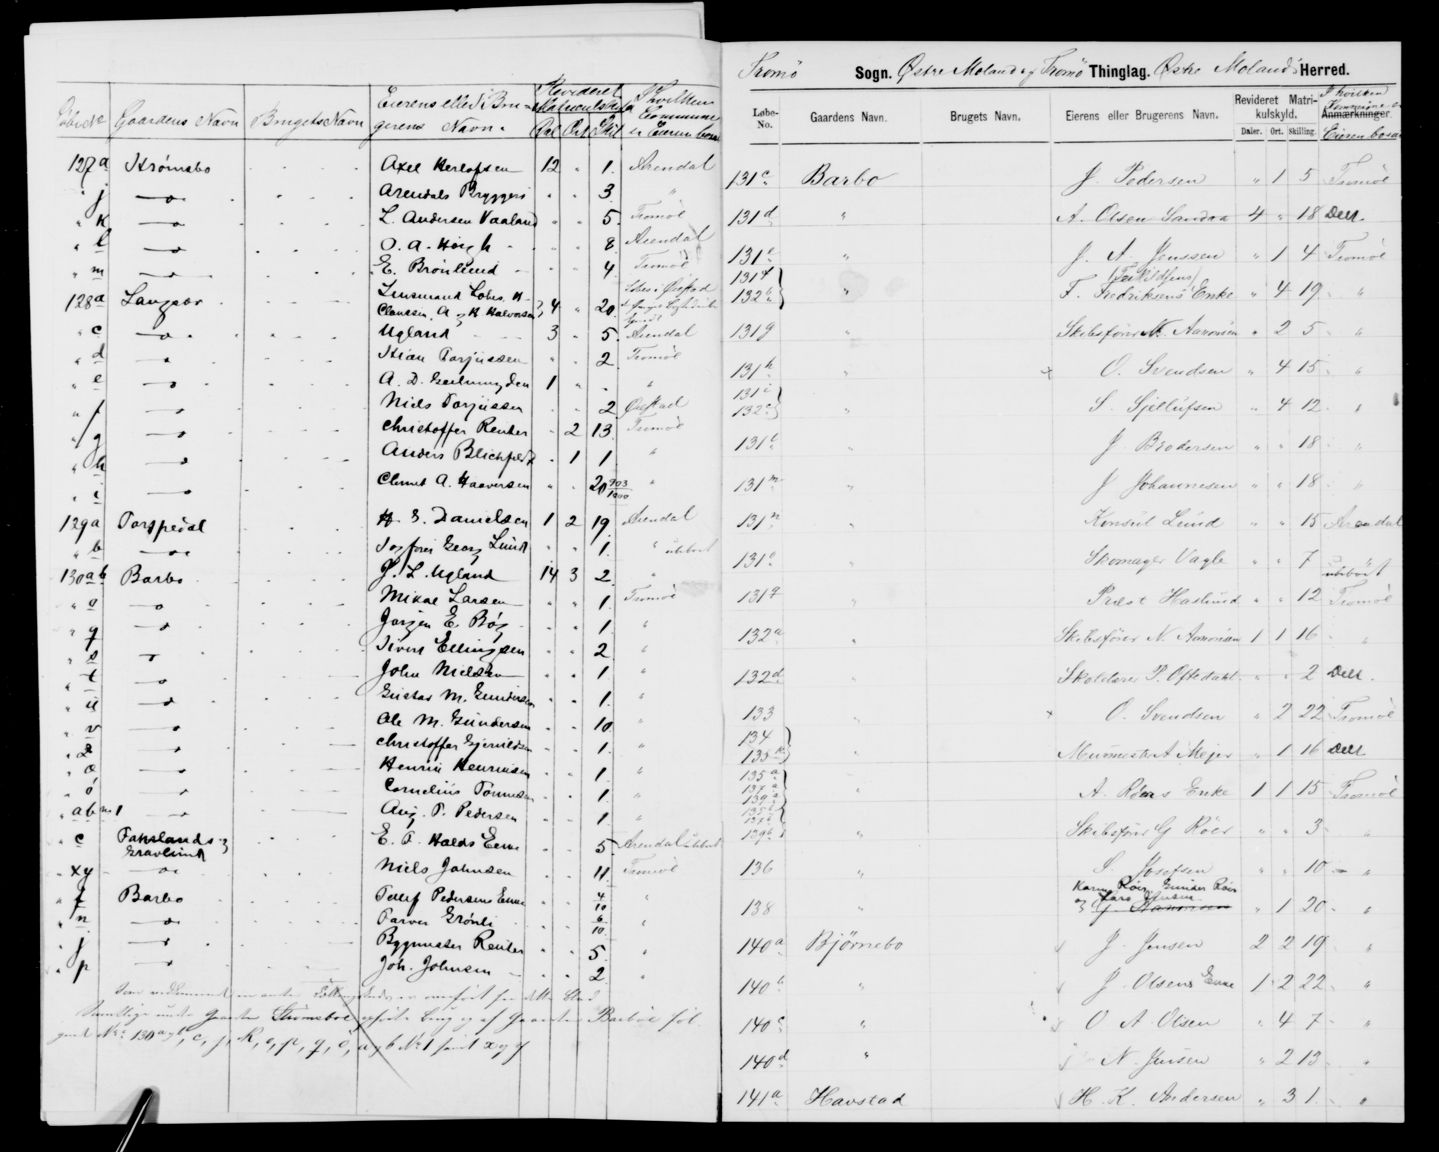 Løbe No Gaardens Navn Brugets Navn Eierens eller Bru- Revideret I hvilken
gerens Navn. Matriculskyld Commune
Dal. Ort Skil er Eieren bosat
127 a Strømsbo Axel Herlofsen 12 " 1. Arendal
" j —"— Arendals Bryggeri " " 3. "
" k —"— L. Andersen Vaaland " " 5. Tromöe
" l —"— O. A. Høigh " " 8 Arendal
" m —"— E. Brönlund " " 4 Tromöe
128 a Langsæ Lensmand
Claussen, A og H Halvorsen 4 " 20.
" c —"— Ugland 3 " 5. Arendal
" d —"— Stian Torjussen " " 2. Tromöe
" e —"— A. D. 1 " " "
" f —"— Niels Torjussen " " 2 Øiestad
" g —"— Christoffer Reuter " 2 13. Tromöe
" h —"— Anders Blichfeldt " 1 1. "
" i —"— A. Haaversen " " 20 703/1000 "
129 a Torspedal H. S. Danielsen 1 2 19. Arendal
" b —"— Georg Lund " " 1. " ubbort
130 a b Barbo J. L. Ugland 14 3 2. "
" o —"— Mikal Larsen " " 1. Tromöe
" q —"— Jørgen E. Bøg " " 1. "
" s —"— Sivert Ellingsen " " 2 "
" t —"— John Nielsen " " 1 "
" u —"— Gustav M. Gundersen " " 1. "
" v —"— Ole M. Gundersen " " 10. "
" z —"— Christoffer Gjeruldsen " " 1. "
" æ —"— Henrik Henriksen " " 1. "
" ö —"— Cornelius Tønnesen " " 1. "
" ab no 1 —"— Aug. T. Pedersen " " 1 "
" c E. T. Holds Enke " " 5. Arendal ubbort
" xy —"— Niels Johnsen " " 11. Tromöe
" f Barbo Tellef Pedersens Enke " " 4/10 "
" n —"— Parver Grönli " " 6/10 "
" j —"— Bygmester Reuter " " 5. "
" p —"— Joh. Johnsen " " 2. "
Gaarden Barboe föl.
gende No. 130 a og b, c, j, k, o, p, q, ö, a og b No 1 samt x og y
Tromö Sogn. Østre Moland og Tromö Thinglag. Østre Molands Herred.
Løbe-No. Gaardens Navn. Brugets Navn. Eierens eller Brugerens Navn. Revideret Matri-kulskyld. I hvilken Commune er
Daler. Ort. Skilling. Anmærkninger. Eieren bosat
131 c Barbo J. Pedersen " 1 5 Tromöe
131 d " A. Olsen Sandva 4 " 18 Dell.
131 e " J. A. Jenssen " 1 4 Tromöe
131 f
132 b " F. Fredriksens Enke " 4 19 "
131 g Skibsfører N. Aanonsen " 2 5 " "
131 h " O. Svendsen " 4 15 "
131 i
132 c " S. Sjellufsen " 4 12 "
131 l " J. Brodersen " " 18 "
131 m " J Johannesen " " 18 "
131 n " Konsul Lund " " 15 Arendal
131 o " Skomager Vagle " " 7 ubbört
131 q " Præst Haslund " " 12 Tromöe
132 a " Skibsfører N. Aanonsen 1 1 16 "
132 d " Skolelærer P. Oftedahl " " 2 Dell.
133 " O. Svendsen " 2 22 Tromöe
134
135 b " Murmester A Mejer " 1 16 Dell
135 a
137 a
139 a " A. Röers Enke 1 1 15 Tromöe
135 c
137 b
139 b " Skibsfører G Röer " " 3 "
136 " S. Josefsen " " 10 "
Karen Röer, Gunder Röer
138 " og Lars Jensen " 1 20 "
140 a Bjørnebo J. Jensen 2 2 19 "
140 b " J. Olsens Enke 1 2 22 "
140 c " O A Olsen " 4 7 "
140 d " N. Jensen " 2 13 "
141 a Havstad H. K. Andersen " 3 1. "